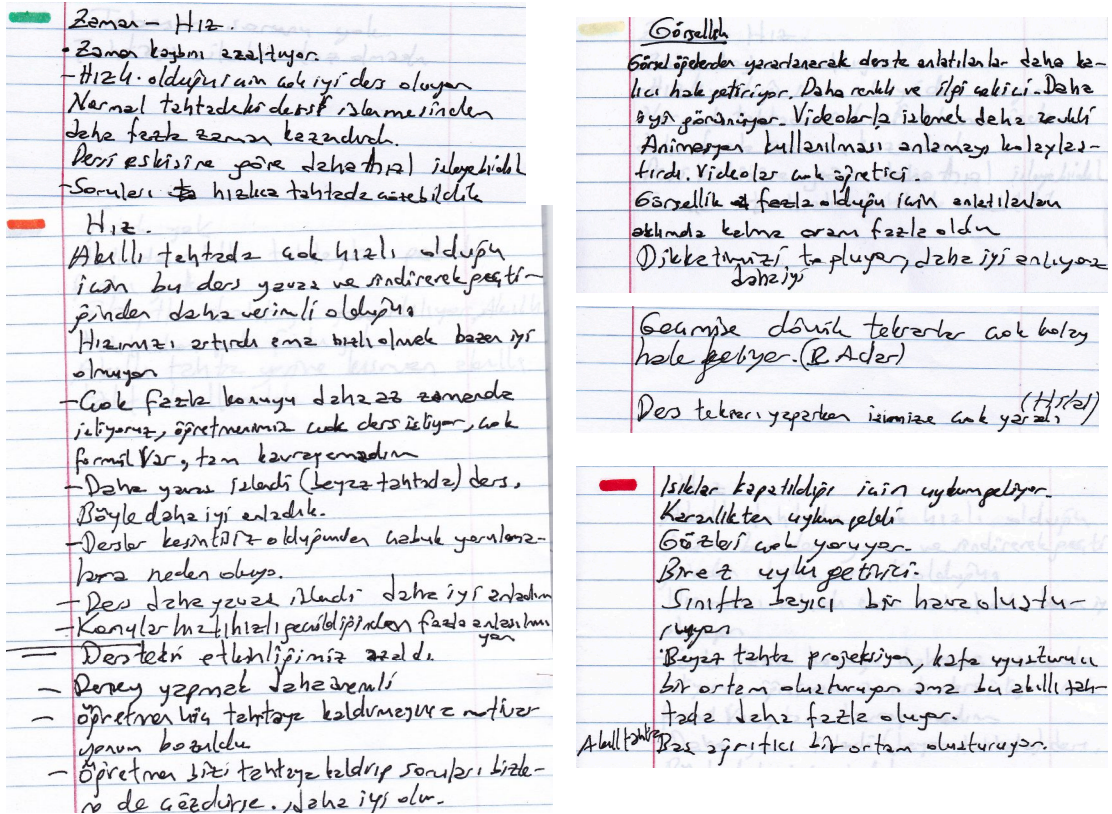 Zaman - Hız.
• Zaman kaybını azaltıyor.
- Hızlı olduğu için çok iyi ders oluyor
Normal tahtadaki dersi işlemesinden
daha fazla zaman kazandırdı.
Dersi eskisine göre daha hızlı işleyebildik
- Soruları hızlıca tahtada çözebildik
Hız.
Akıllı tahtada çok hızlı olduğu
için bu ders yavaş ve sindirerek geçti-
ğinden daha verimli olduğu.
Hızımızı artırdı ama hızlı olmak bazen iyi
olmuyor
- Çok fazla konuyu daha az zamanda
işliyoruz, öğretmenimiz çok ders işliyor, çok
formül var, tam kavrayamadım
- Daha yavaş işlendi (beyaz tahtada) ders.
Böyle daha iyi anladık.
- Dersler kesintisiz olduğundan çabuk yorulma-
lara neden oluyo.
- Ders daha yavaş işlendi daha iyi anladım
- Konular hızlı hızlı geçildiğinden fazla anlaşılmı
yor
- Dersteki etkinliğimiz azaldı.
- Deney yapmak daha önemli
- Öğretmen hiç tahtaya kaldırmayınca motivas
yonum bozuldu
- Öğretmen bizi tahtaya kaldırıp soruları bizle-
re de çözdürse., daha iyi olur.
Görsellik
Görsel öğelerden yararlanarak derste anlatılanlar daha ka-
lıcı hale getiriyor. Daha renkli ve ilgi çekici. Daha
iyi görünüyor. Videolarla izlemek daha zevkli
Animasyon kullanılması anlamayı kolaylaş-
tırdı. Videolar çok öğretici.
Görsellik fazla olduğu için anlatılanların
aklımda kalma oranı fazla oldu
Dikkatimizi topluyor, daha iyi anlıyoruz
daha iyi
Geçmişe dönük tekrarlar çok kolay
hale geliyor. (R. Aclar)
Ders tekrarı yaparken işimize çok yaradı (Hilal)
Işıklar kapatıldığı için uykum geliyor.
Karanlıkten uykum geldi
Gözleri çok yoruyor.
Biraz uyku getirici.
Sınıfta bayıcı bir hava oluştu-
ruyor
Beyaz tahta projeksiyon, kafa uyuşturucu
bir ortam oluşturuyor ama bu akıllı tah-
tada daha fazla oluyor.
Akıll tahta Baş ağrıtıcı bir ortam oluşturuyor.